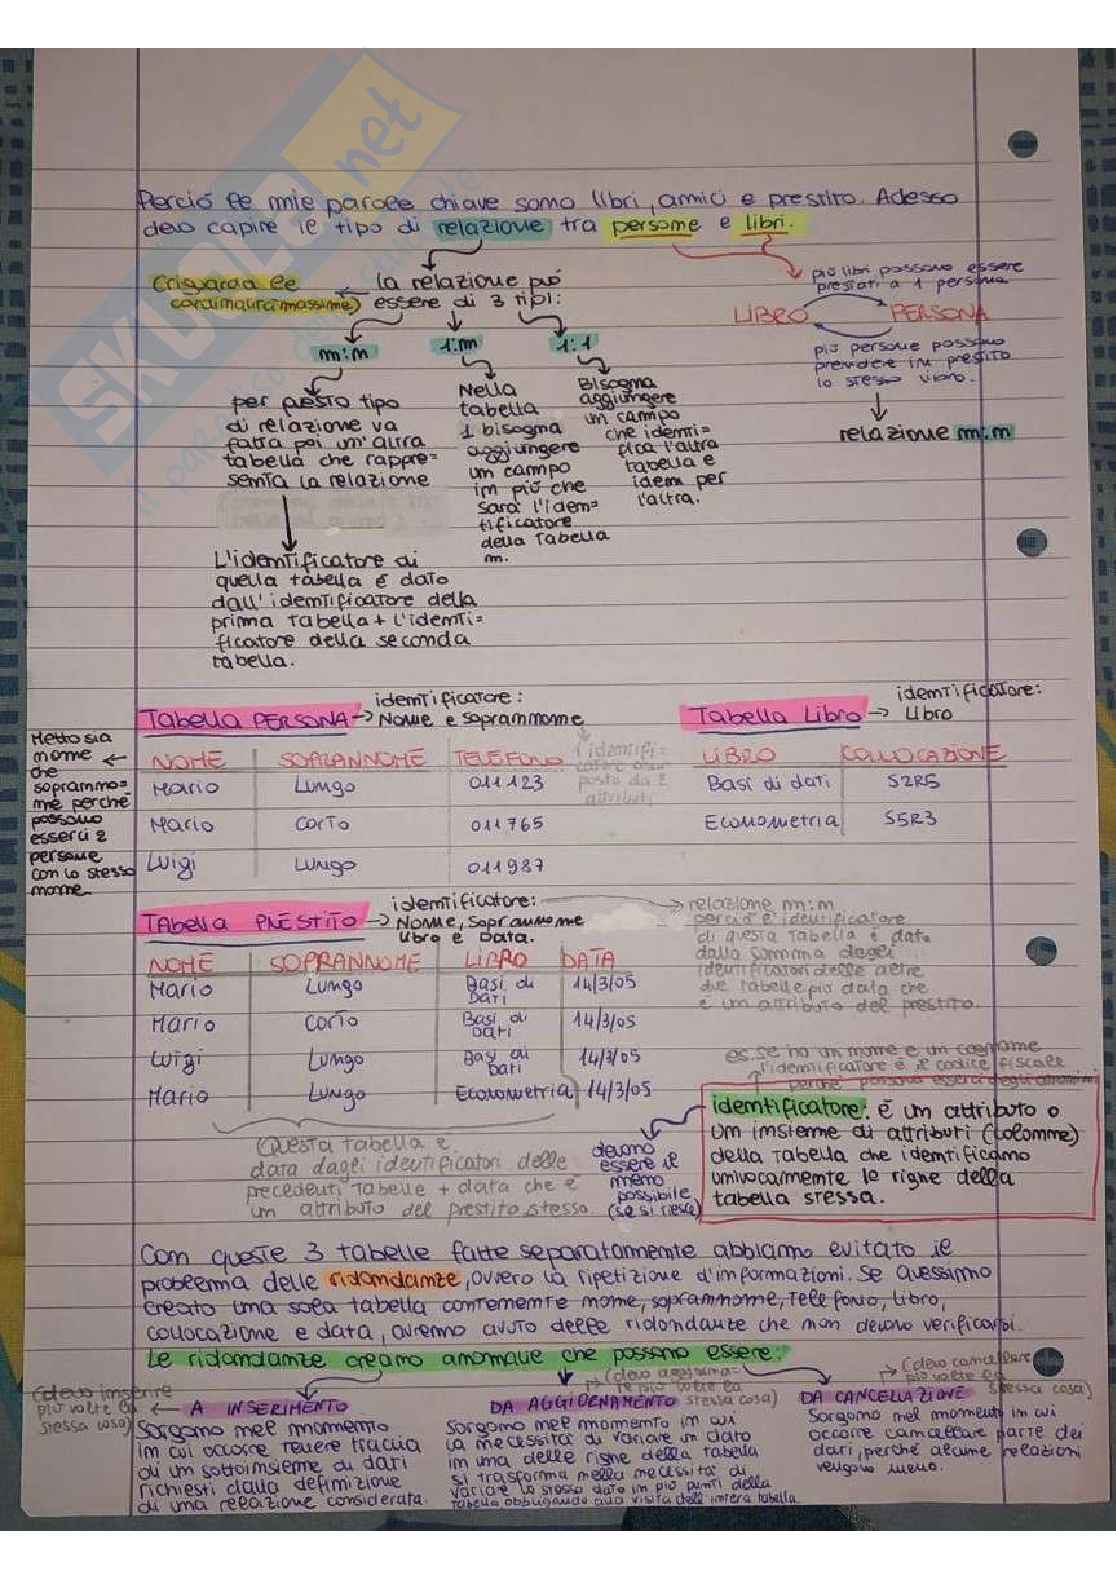 Perciò le mie parole chiave sono libri, amici e prestito. Adesso
devo capire il tipo di relazione tra persone e libri.
(riguarda le
cardinalità massime)
la relazione può
essere di 3 tipi:
più libri possono essere
prestati a 1 persona
LIBRO
PERSONA
più persone possono
prendere in prestito
lo stesso libro.
relazione m:m
m:m
1:m
1:1
per questo tipo
di relazione va
fatta poi un'altra
tabella che rappre=
senta la relazione
L'identificatore di
quella tabella è dato
dall'identificatore della
prima tabella + l'identi=
ficatore della seconda
tabella.
Nella
tabella
1 bisogna
aggiungere
un campo
in più che
sarà l'iden=
tificatore
della Tabella
m.
Bisogna
aggiungere
un campo
che identi=
fica l'altra
tabella e
idem per
l'altra.
Tabella PERSONA
identificatore:
Nome e soprannome
l'identifi=
posto da 2
attributi
Metto sia
nome
che
soprannno=
me perché
possono
esserci 2
persone
con lo stesso
nome
NOME SOPRANNOME TELEFONO
Mario Lungo 011 123
Mario Corto 011 765
Luigi Lungo 011 987
Tabella Libro
identificatore:
Libro
LIBRO COLLOCAZIONE
Basi di dati S2R5
Econometria S5R3
Tabella PRESTITO
identificatore:
Nome, Soprannome
Libro e Data.
relazione m:m
perciò l'identificatore
di questa tabella è dato
dalla somma degli
identificatori delle altre
due tabelle più data che
è un attributo del prestito.
NOME SOPRANNOME LIBRO DATA
Mario Lungo Basi di Dati 14/3/05
Mario Corto Basi di Dati 14/3/05
Luigi Lungo Basi di Dati 14/3/05
Mario Lungo Econometria 14/3/05
Questa tabella è
data dagli identificatori delle
precedenti Tabelle + data che è
un attributo del prestito stesso
devono
essere il
meno
possibile
(se si riesce)
es. se ho un nome e un cognome
l'identificatore è il codice fiscale
perché possono esserci degli omonimi
identificatore: è un attributo o
un insieme di attributi (colonne)
della Tabella che identificano
univocamente le righe della
tabella stessa.
Con queste 3 tabelle fatte separatamente abbiamo evitato il
problema delle ridondanze, ovvero la ripetizione d'informazioni. Se avessimo
creato una sola tabella contenente nome, soprannome, telefono, libro,
collocazione e data, avremo avuto delle ridondanze che non devono verificarsi.
Le ridondanze creano anomalie che possono essere:
(devo inserire
più volte la
stessa cosa)
A INSERIMENTO
Sorgono nel momento
in cui occorre tenere traccia
di un sottoinsieme di dati
richiesti dalla definizione
di una relazione considerata.
(devo aggiorna=
re più volte la
stessa cosa)
DA AGGIORNAMENTO
Sorgono nel momento in cui
la necessità di variare un dato
in una delle righe della tabella
si trasforma nella necessità di
variare lo stesso dato in più punti della
tabella obbligando alla visita dell'intera tabella
(devo cancellare
più volte la
stessa cosa)
DA CANCELLAZIONE
Sorgono nel momento in cui
occorre cancellare parte dei
dati, perché alcune relazioni
vengono meno.
SKUOLA.net